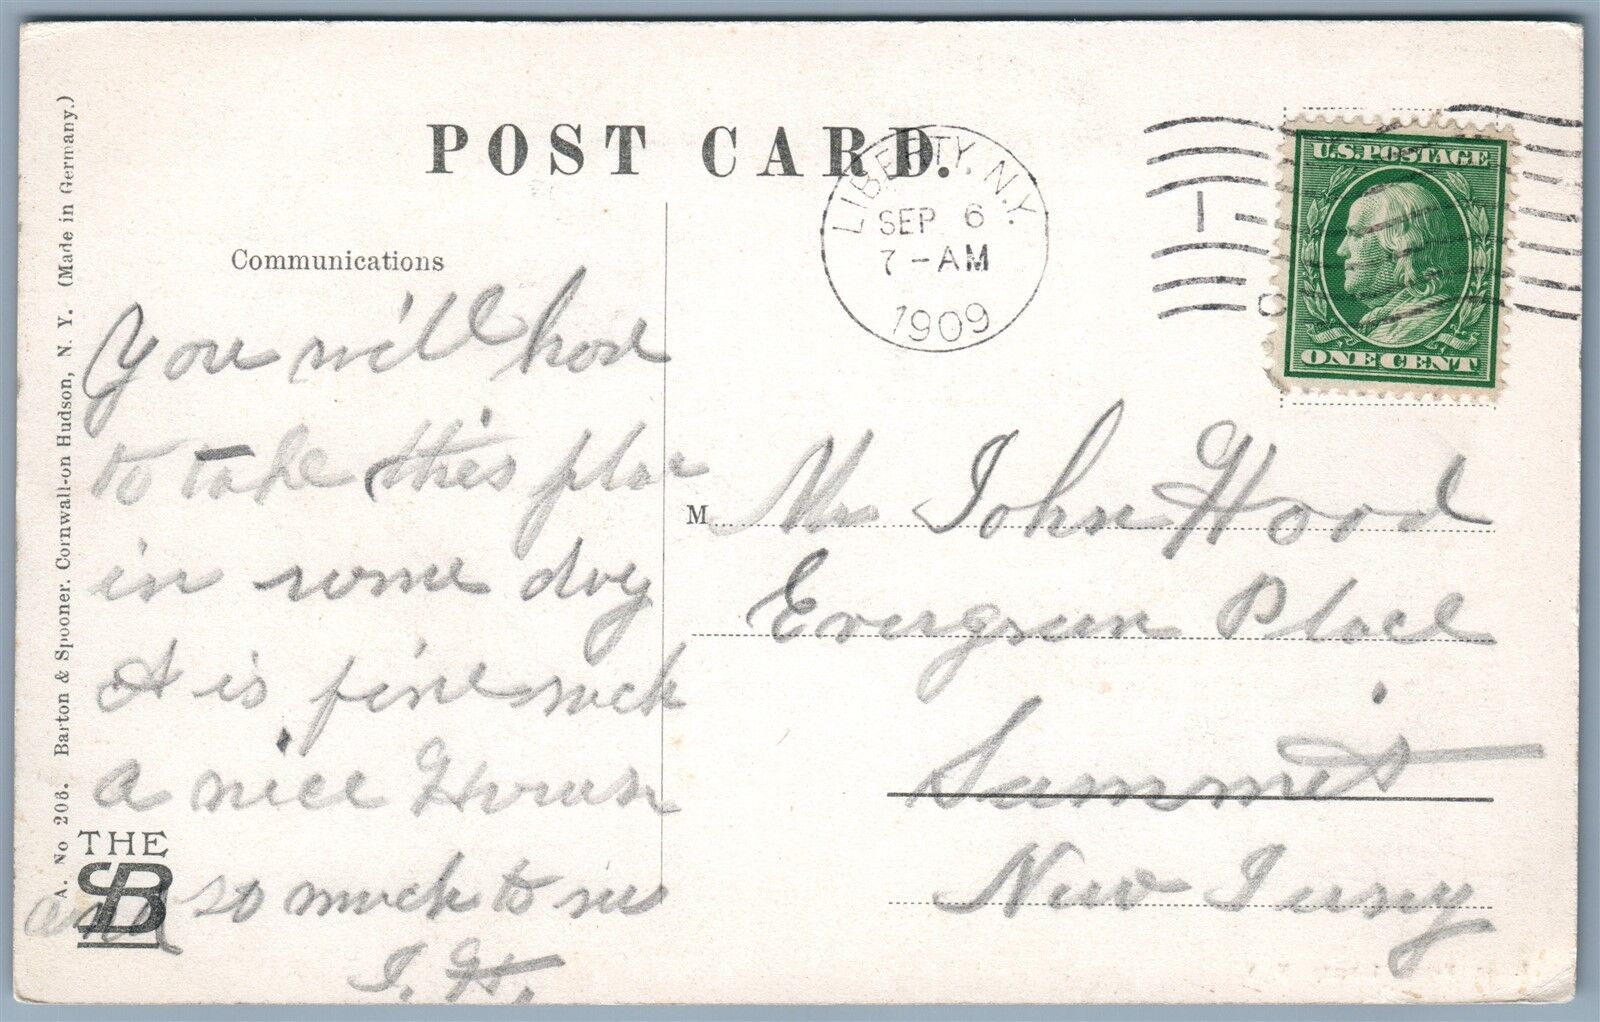 POST CARD.
Communications
LIBERTY, N.Y.
SEP 6
7-AM
1909
U.S.POSTAGE
ONE CENT
You will have
to take this place
in some day
it is fine such
a nice House
and so much to see
J. H.
M
Mr John Hood
Evergreen Place
Summit
New Jersey
A. No 206. Barton & Spooner. Cornwall-on Hudson, N. Y. (Made in Germany.)
THE
SB